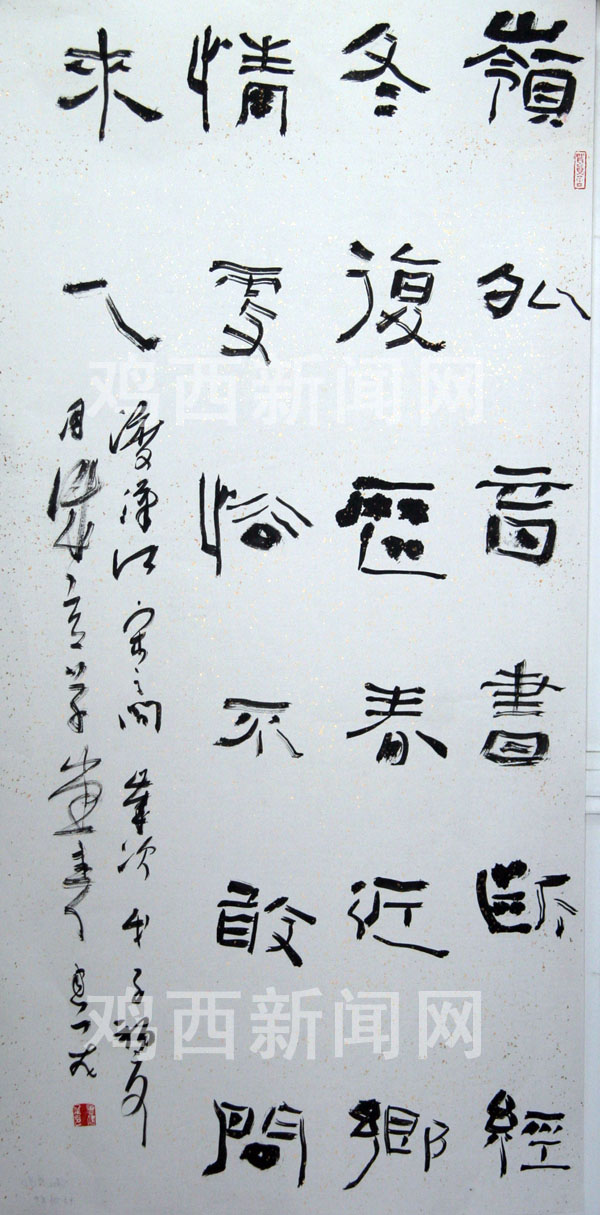 嶺外音書斷經
冬復歷春近鄉
情更怯不敢問
來人
渡漢江宋之問歲次戊子初夏
鸡西新闻网
鸡西新闻网